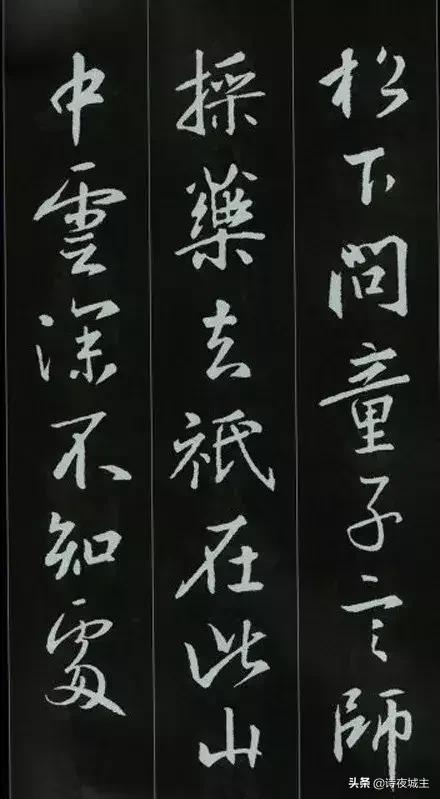 松下問童子言師
採藥去祇在此山
中雲深不知處
头条 @诗夜城主